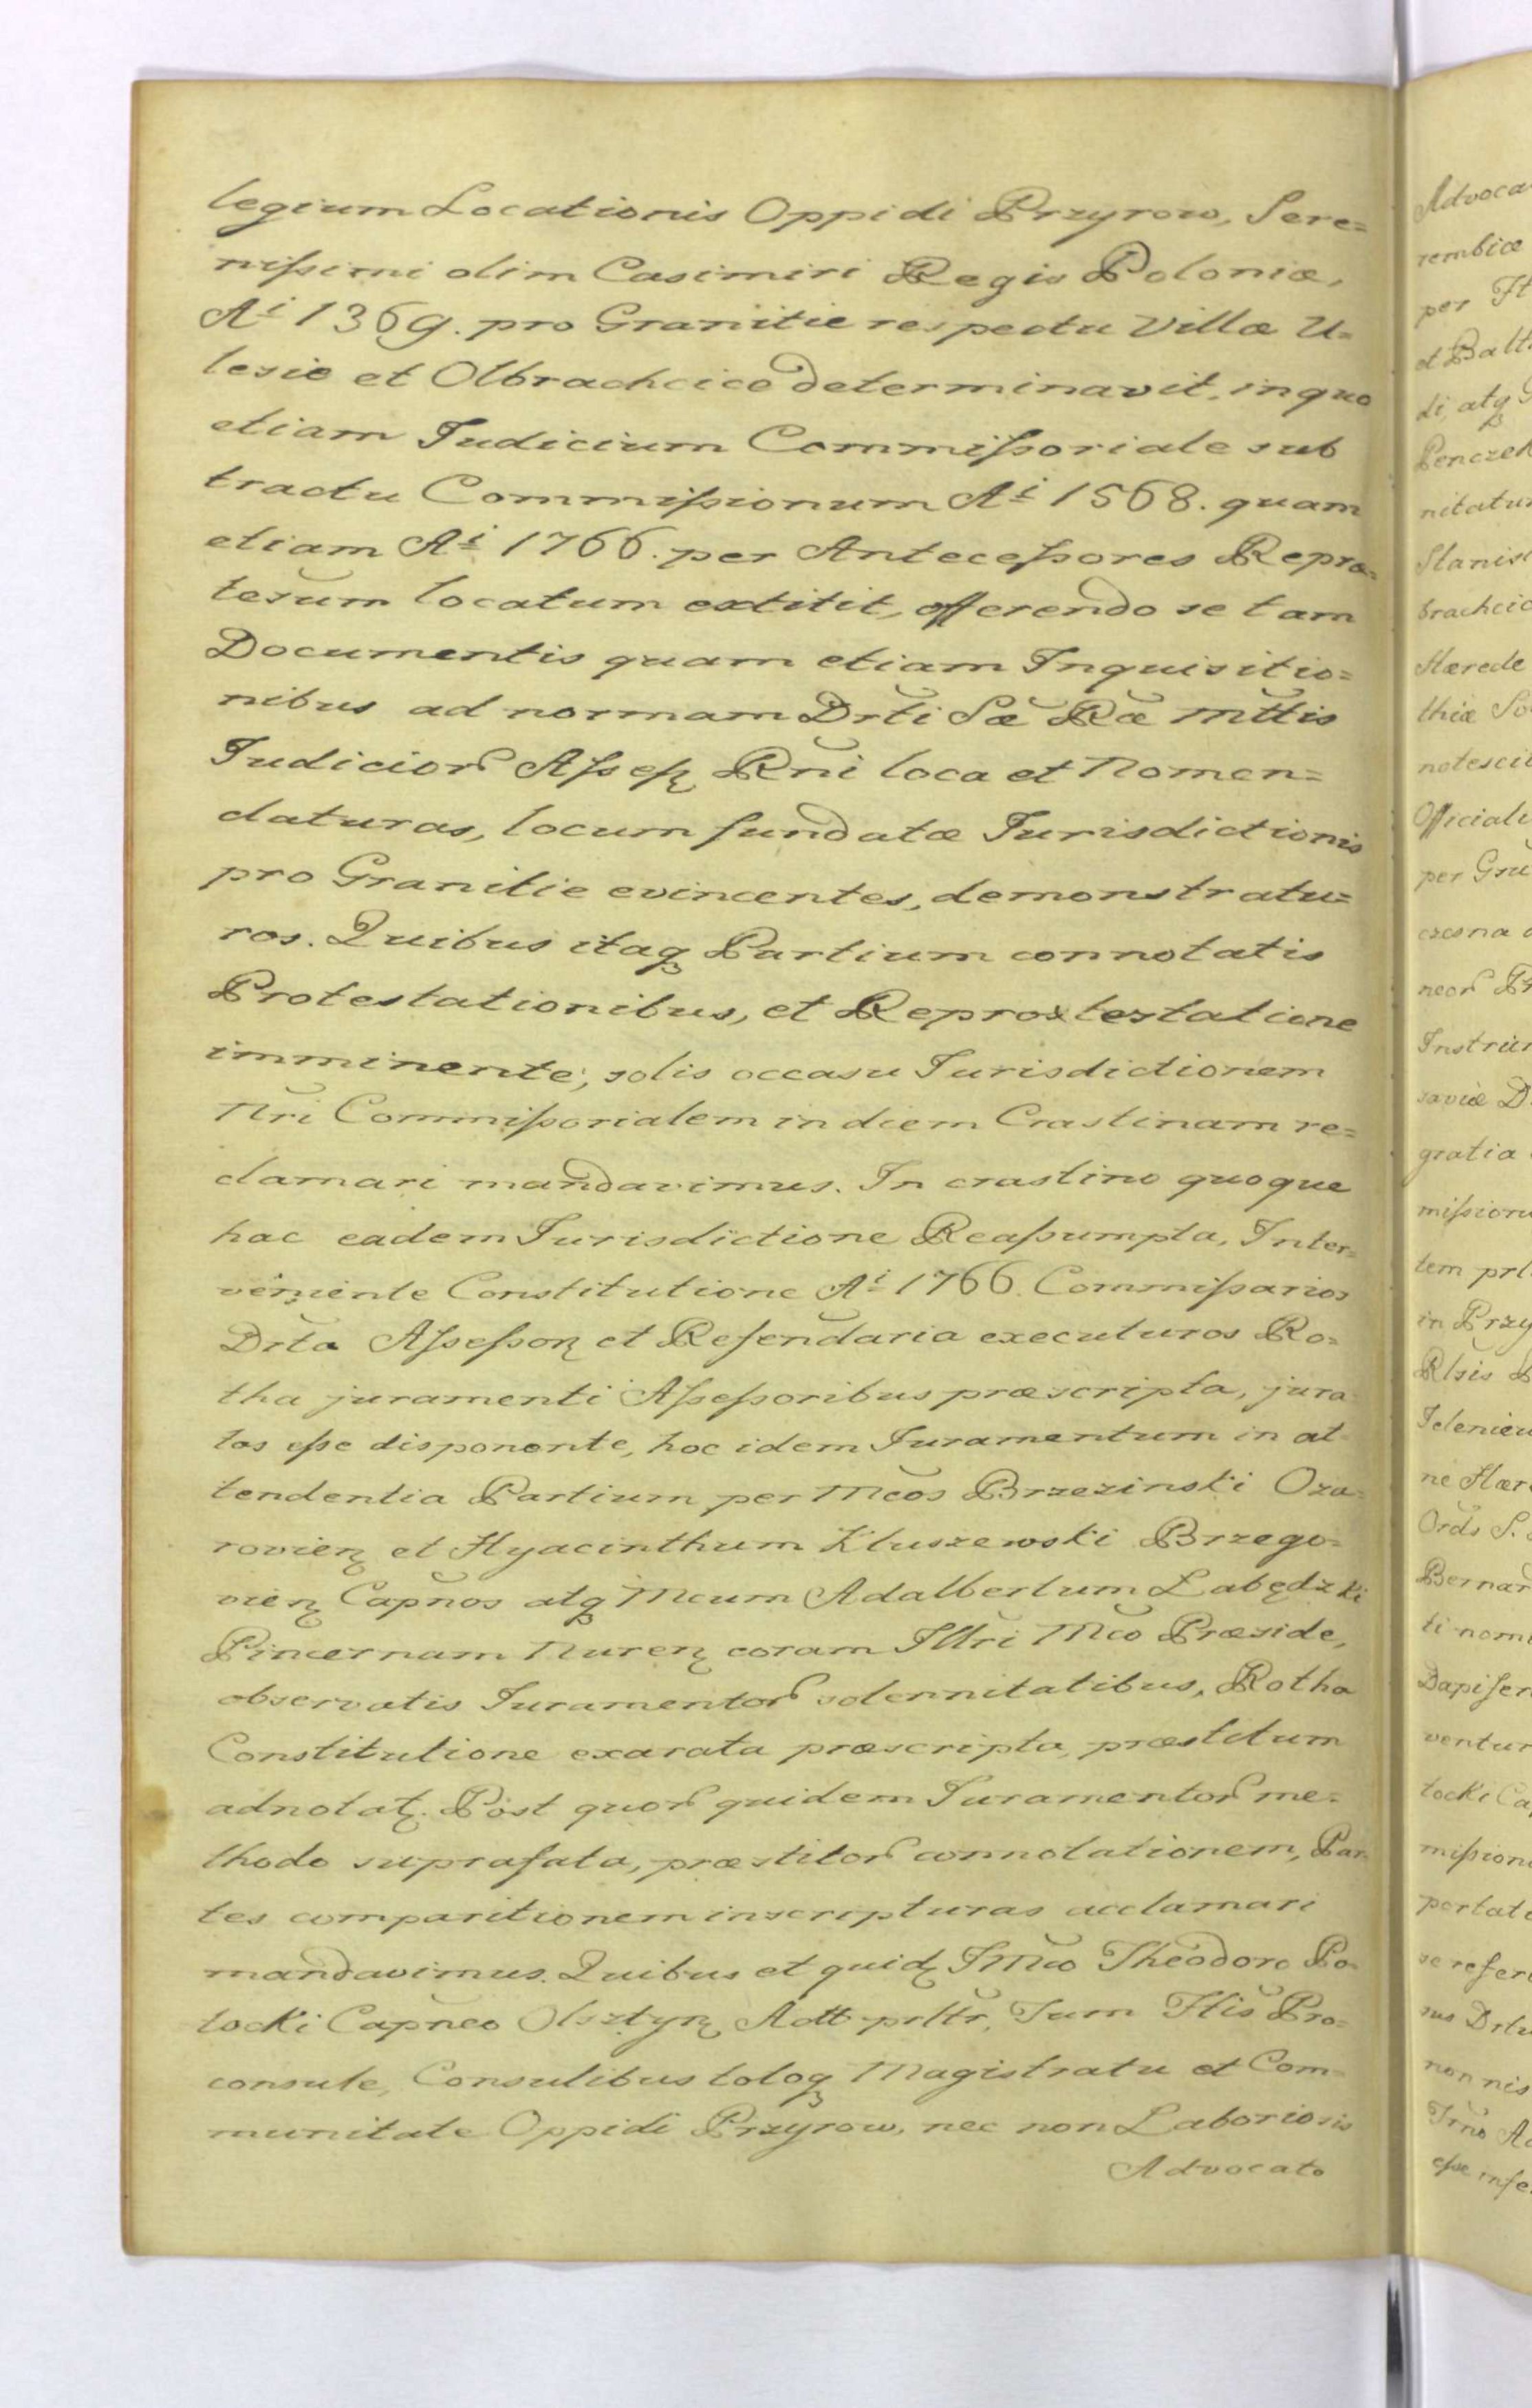 legium Locationis Oppidi Przyrow, Sere=
nissimi olim Casimiri Regis Poloniæ,
Ai 1369. pro Granitie respectu Villæ U=
lesie et Olbrachcice determinavit, in quo
etiam Judicium Commissoriale sub
tractu Commissionum Ai 1568. quam
etiam Ai 1766. per Antecessores Repro=
tesūm locatum extitit, offerendo se tam
Documentis quam etiam Inquisitio=
nibus ad normam Drti Sæ Ræ Mttis
Judicior Assess Rni loca et Nomen=
claturas, locum fundatæ Jurisdictionis
pro Granitie evincentes, demonstratu=
ros. Quibus itaq Partium connotatis
Protestationibus, et Reprotestatione
imminente, solis occasu Jurisdictionem
Nri Commissorialem in diem Crastinam re=
clamari mandavimus. In crastino quoque
hac eadem Jurisdictione Reassumpta, Inter=
veniente Constitutione Ai 1766. Commissarios
Drta Assessor et Referendaria executuros Ro=
tha juramenti Assessoribus præscripta, jura
tos esse disponente, hoc idem Juramentum in at
tendentia Partium per Mcos Brzezinski Oza=
rovien et Hyacinthum Kluszewski Brzego=
vien Capnos atq Mcum Adalbertum Labędzki
Pincernam Nuren coram Illri Mco Præside,
observatis Juramentor solennitatibus, Rotha
Constitutione exarata præscripta, præstitum
adnotat. Post quor quidem Juramentor me=
thodo suprafata, præstitor connotationem, Par=
tes comparitionem inscripturas acclamari
mandavimus. Quibus et quid IMco Theodoro Po=
tocki Capneo Olsztyn Actt prltr, Tum Flis Pro=
consule, Consulibus totoq Magistratu et Com=
munitate Oppidi Przyrow, nec non Laboriosis
Advocato